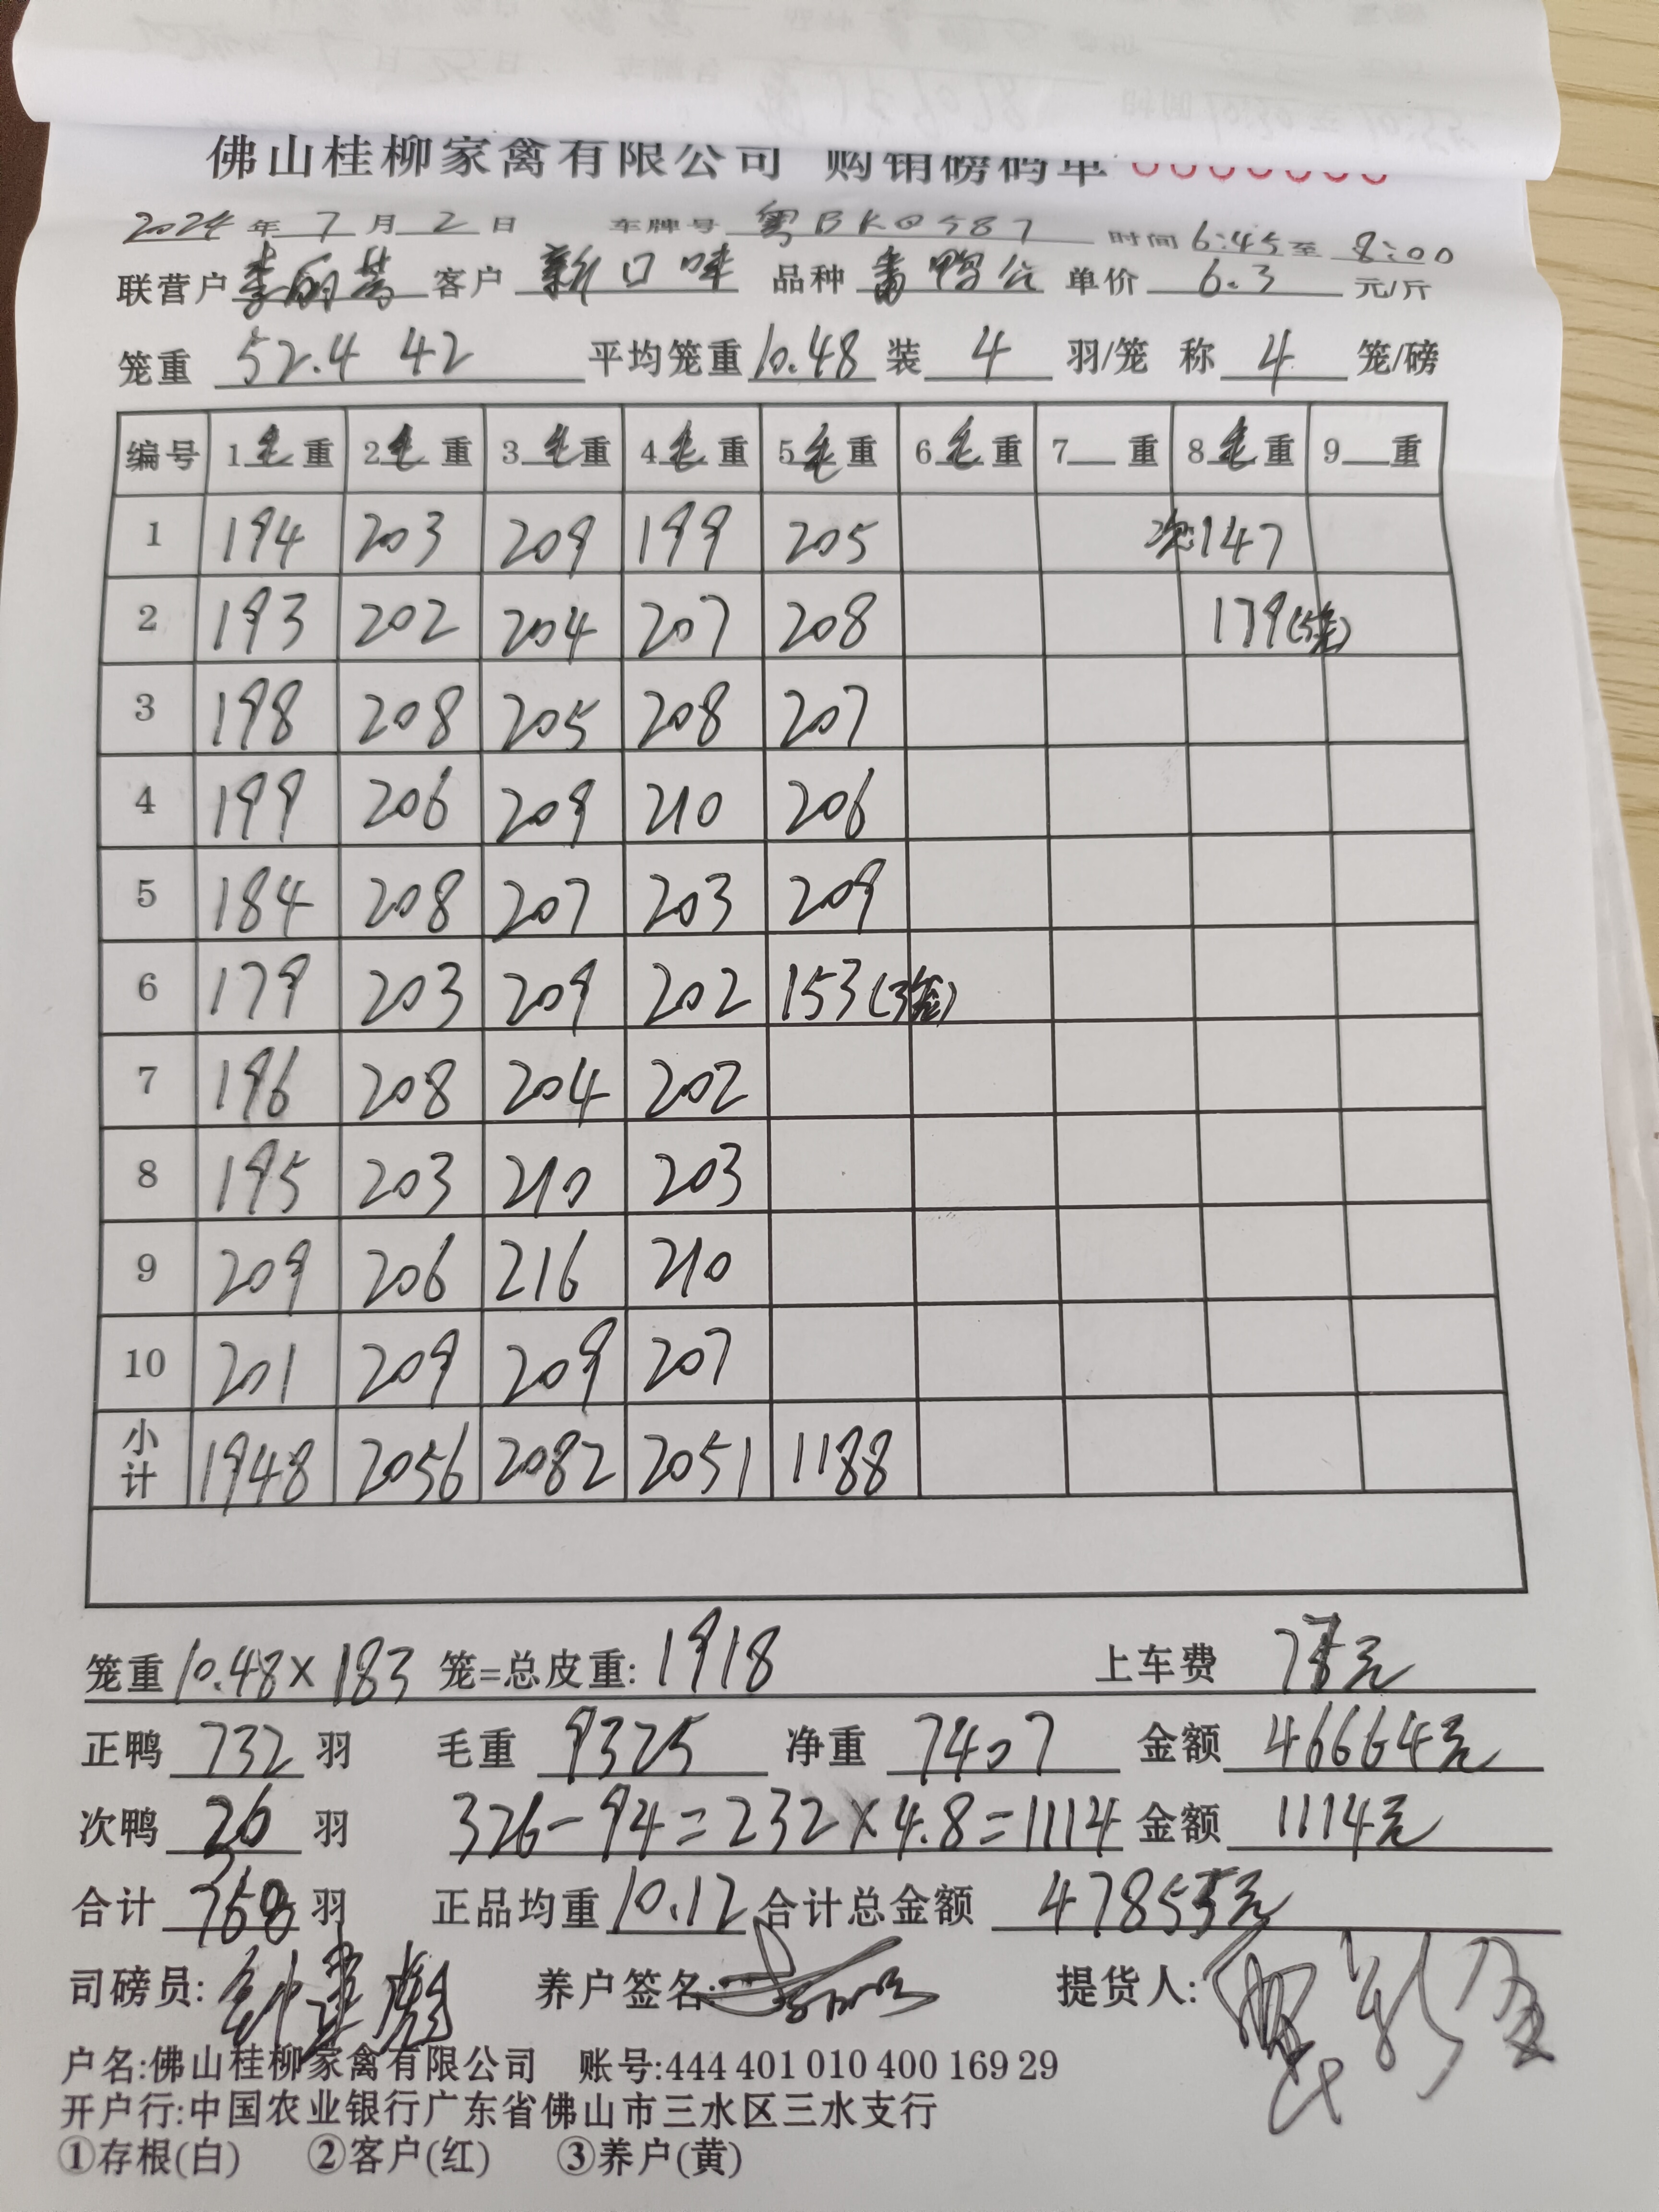 佛山桂柳家禽有限公司 购销磅码单
2024 年 7 月 2 日 车牌号 粤BK0587 时间 6:45 至 8:00
联营户 李丽芳 客户 新口味 品种 番鸭公 单价 6.3 元/斤
笼重 52.4 42 平均笼重 10.48 装 4 羽/笼 称 4 笼/磅
编号 1毛重 2毛重 3毛重 4毛重 5毛重 6毛重 7 重 8毛重 9 重
1 194 203 209 199 205 次:147
2 193 202 204 207 208 179(5笼)
3 198 208 205 208 207
4 199 206 209 210 206
5 184 208 207 203 209
6 179 203 209 202 153(3笼)
7 196 208 204 202
8 195 203 210 203
9 209 206 216 210
10 201 209 209 207
小计 1948 2056 2082 2051 1188
笼重 10.48×183 笼=总皮重: 1918 上车费 75元
正鸭 732 羽 毛重 9325 净重 7407 金额 46664元
次鸭 26 羽 326-94=232×4.8=1114 金额 1114元
合计 758 羽 正品均重 10.12 合计总金额 47853元
司磅员: 养户签名: 提货人:
户名:佛山桂柳家禽有限公司 账号:444 401 010 400 169 29
开户行:中国农业银行广东省佛山市三水区三水支行
①存根(白) ②客户(红) ③养户(黄)